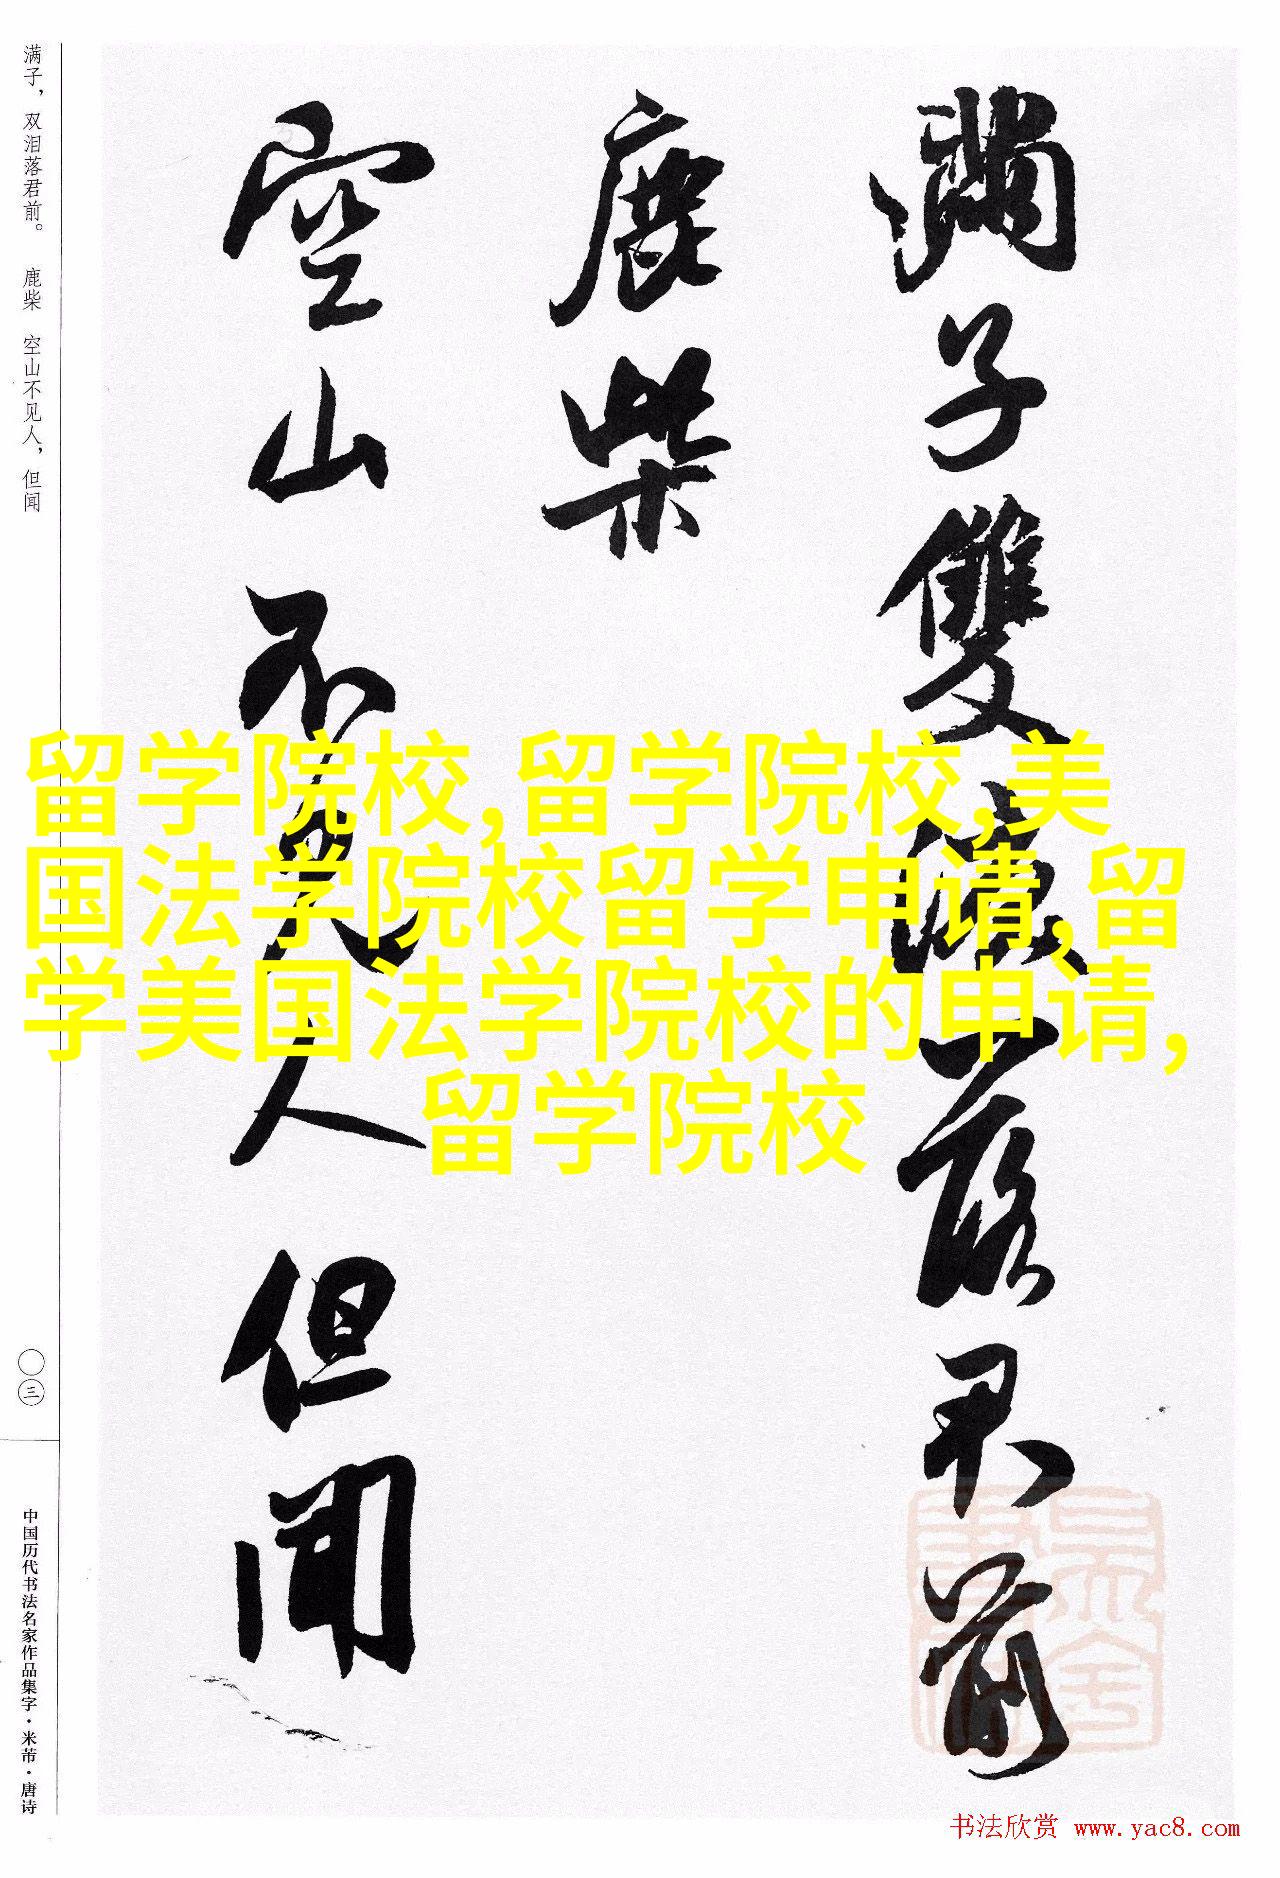 满子，双泪落君前。 鹿柴 空山不见人，但闻
滿子雙淚落君前
鹿柴
空山不見人但聞
留学院校,留学院校,美
国法学院校留学申请,留
学美国法学院校的申请,
留学院校
〇三
中国历代书法名家作品集字·米芾·唐诗
书法欣赏 www.yac8.com